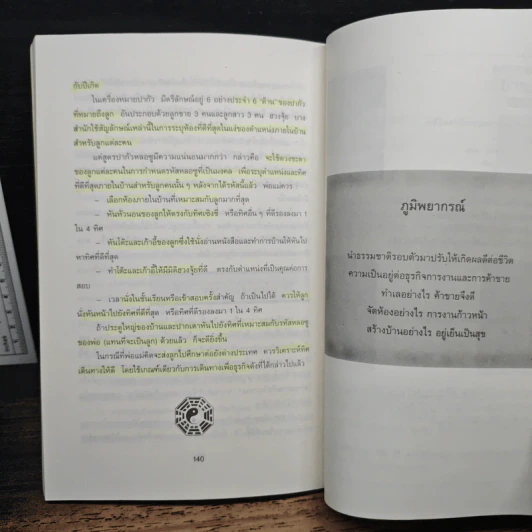 กับปีเกิด
ในเครื่องหมายปากัว มีตรีลักษณ์อยู่ 6 อย่างประจำ 6 "ด้าน" ของปากัว
ที่หมายถึงลูก อันประกอบด้วยลูกชาย 3 คนและลูกสาว 3 คน ฮวงจุ้ย บาง
สำนักใช้สัญลักษณ์เหล่านี้ในการระบุห้องที่ดีที่สุดในแง่ของตำแหน่งภายในบ้าน
สำหรับลูกแต่ละคน
แต่สูตรปากัวหลอซูมีความแน่นอนมากกว่า กล่าวคือ จะใช้ดวงชะตา
ของลูกแต่ละคนในการกำหนดรหัสหลอซูที่เป็นมงคล เพื่อระบุตำแหน่งและทิศ
ที่ดีที่สุดภายในบ้านสำหรับลูกคนนั้น ๆ หลังจากได้รหัสนี้แล้ว พ่อแม่ควร
– เลือกห้องภายในบ้านที่เหมาะสมกับลูกมากที่สุด
– หันหัวนอนของลูกให้ตรงกับทิศเซิงชี่ หรือทิศอื่น ๆ ที่ดีรองลงมา 1
ใน 4 ทิศ
– หันโต๊ะและเก้าอี้ของลูกซึ่งใช้นั่งอ่านหนังสือและทำการบ้านให้หันไป
หาทิศที่ดีที่สุด
– ทำโต๊ะและเก้าอี้ให้มีมิติฮวงจุ้ยที่ดี ตรงกับตำแหน่งที่เป็นคุณต่อการ
สอบ
– เวลานั่งในชั้นเรียนหรือเข้าสอบครั้งสำคัญ ถ้าเป็นไปได้ ควรให้ลูก
นั่งหันหน้าไปยังทิศที่ดีที่สุด หรือทิศที่ดีรองลงมา 1 ใน 4 ทิศ
ถ้าประตูใหญ่ของบ้านและปากเตาหันไปยังทิศที่เหมาะสมกับรหัสหลอซู
ของพ่อ (แทนที่จะเป็นลูก) ด้วยแล้ว ก็จะดียิ่งขึ้น
ในกรณีที่พ่อแม่คิดจะส่งลูกไปศึกษาต่อยังต่างประเทศ ควรวิเคราะห์ทิศ
เดินทางให้ดี โดยใช้เกณฑ์เดียวกับการเดินทางเพื่อธุรกิจดังที่ได้กล่าวไปแล้ว
140
ภูมิพยากรณ์
นำธรรมชาติรอบตัวมาปรับให้เกิดผลดีต่อชีวิต
ความเป็นอยู่ต่อธุรกิจการงานและการค้าขาย
ทำเลอย่างไร ค้าขายจึงดี
จัดห้องอย่างไร การงานก้าวหน้า
สร้างบ้านอย่างไร อยู่เย็นเป็นสุข